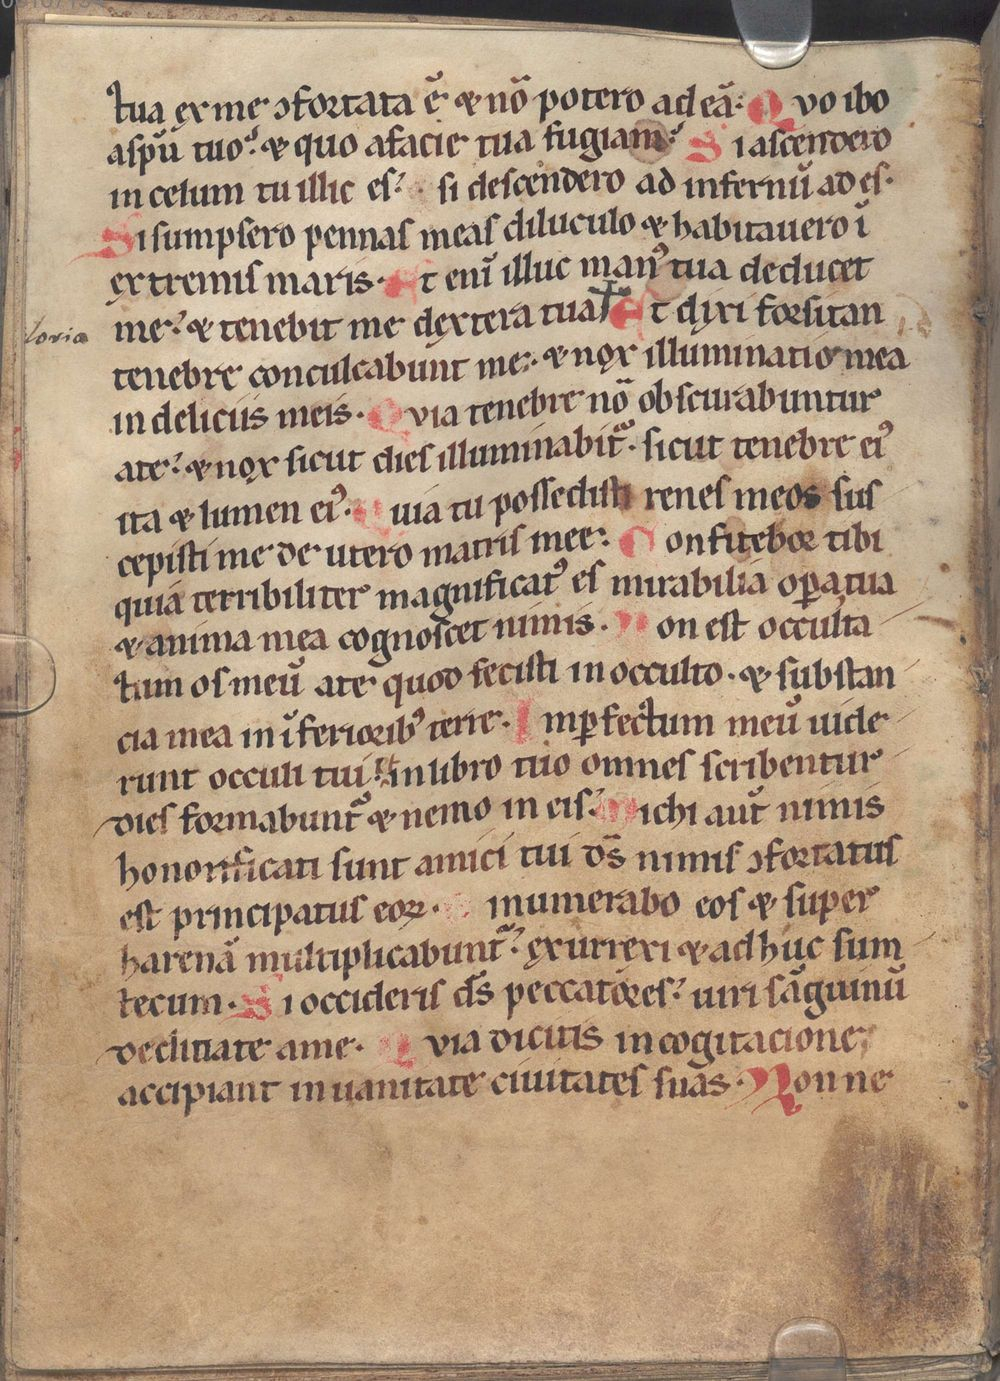 tua ex me ↄfortata ē & nō potero ad eā· Quo ibo
a spū tuo? & quo a facie tua fugiam? Si ascendero
in celum tu illic es? si descendero ad infernū ades·
Si sumpsero pennas meas diluculo & habitauero ī
extremis maris· Et enī illuc man᾽ tua deducet
me? & tenebit me dextera tua† Et dixi forsitan
loria
tenebre conculcabunt me· & nox illuminatio mea
in deliciis meis· Quia tenebre nō obscurabuntur
a te? & nox sicut dies illuminabit᾽· sicut tenebre ei᾽
ita & lumen ei᾽· Quia tu possedisti renes meos sus
cepisti me de utero matris mee· Confitebor tibi
quia terribiliter magnificat᾽ es mirabilia oꝑa tua
& anima mea cognoscet nimis· Non est occulta
tum os meū a te quod fecisti in occulto· & substan
cia mea in īferiorib᾽ terre· Imꝑfectum meū uide
runt occuli tui & in libro tuo omnes scribentur
dies formabunt᾽ & nemo in eis? Michi aut̄ nimis
honorificati sunt amici tui ds̄ nimis ↄfortatus
est principatus eoꝝ· Dinumerabo eos & super
harenā multiplicabunt᾽? exurrexi & adhuc sum
tecum· Si occideris ds̄ peccatores? uiri sāguinū
declinate a me· Quia dicitis in cogitacione
accipiant in uanitate ciuitates suas· Nonne